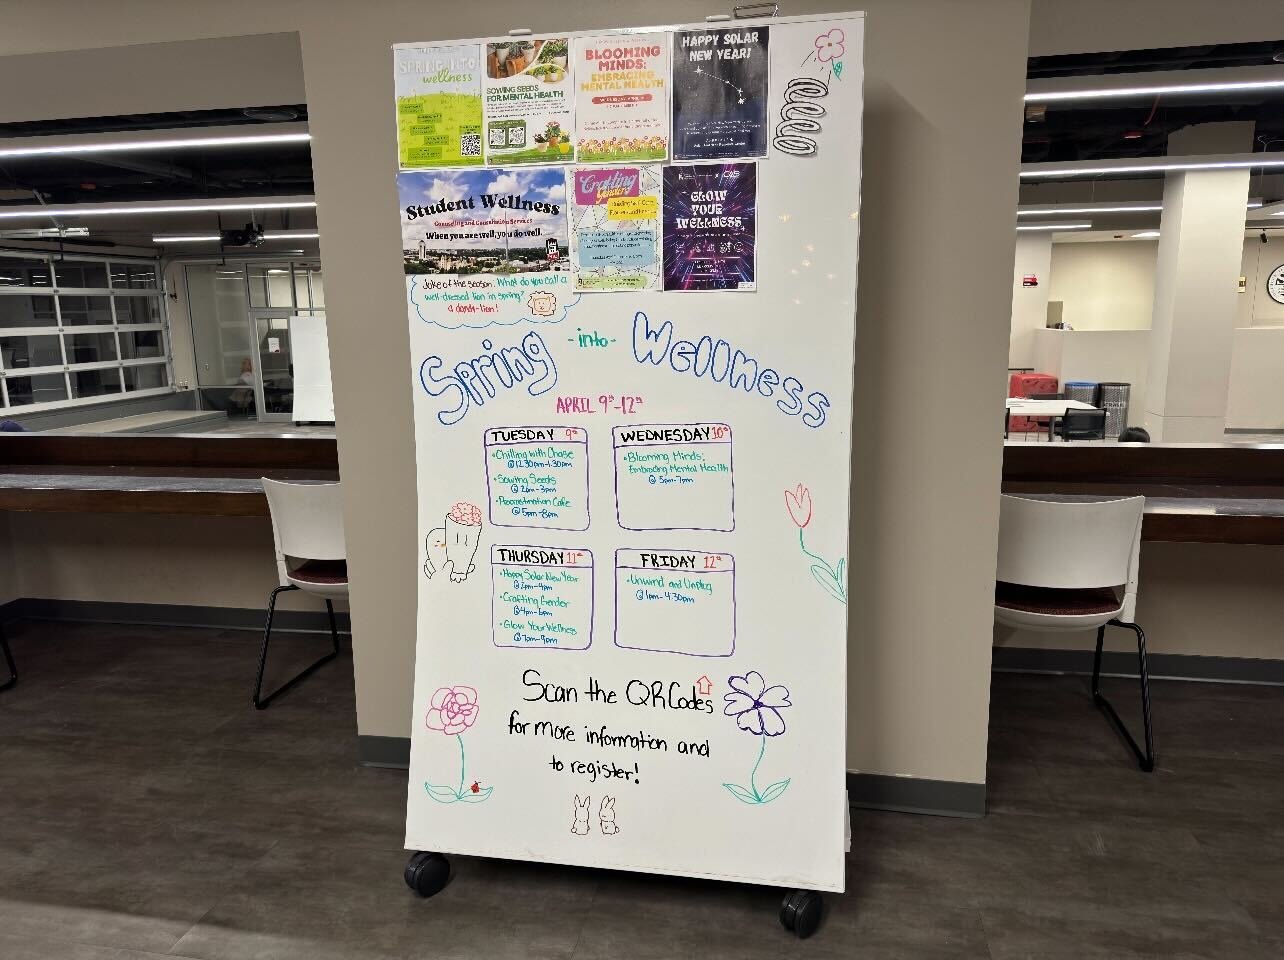 SPRING INTO
wellness
SOWING SEEDS
FOR MENTAL HEALTH
BLOOMING
MINDS:
EMBRACING
MENTAL HEALTH
HAPPY SOLAR
NEW YEAR!
Student Wellness
Counseling and Consultation Services
When you are well, you do well.
Crafting
Gender
GLOW
YOUR
WELLNESS
Joke of the season: What do you call a
well-dressed lion in spring?
a dandy-lion!
Spring -into- Wellness
APRIL 9th-12th
TUESDAY 9th
• Chilling with Chase
@ 12:30pm-1:30pm
• Sowing Seeds
@ 2pm-3pm
• Procrastination Cafe
@ 5pm-8pm
WEDNESDAY 10th
• Blooming Minds:
Embracing Mental Health
@ 5pm-7pm
THURSDAY 11th
• Happy Solar New Year
@ 2pm-4pm
• Crafting Gender
@ 4pm-6pm
• Glow Your Wellness
@ 7pm-9pm
FRIDAY 12th
• Unwind and Unplug
@ 1pm-4:30pm
Scan the QR Codes
for more information and
to register!